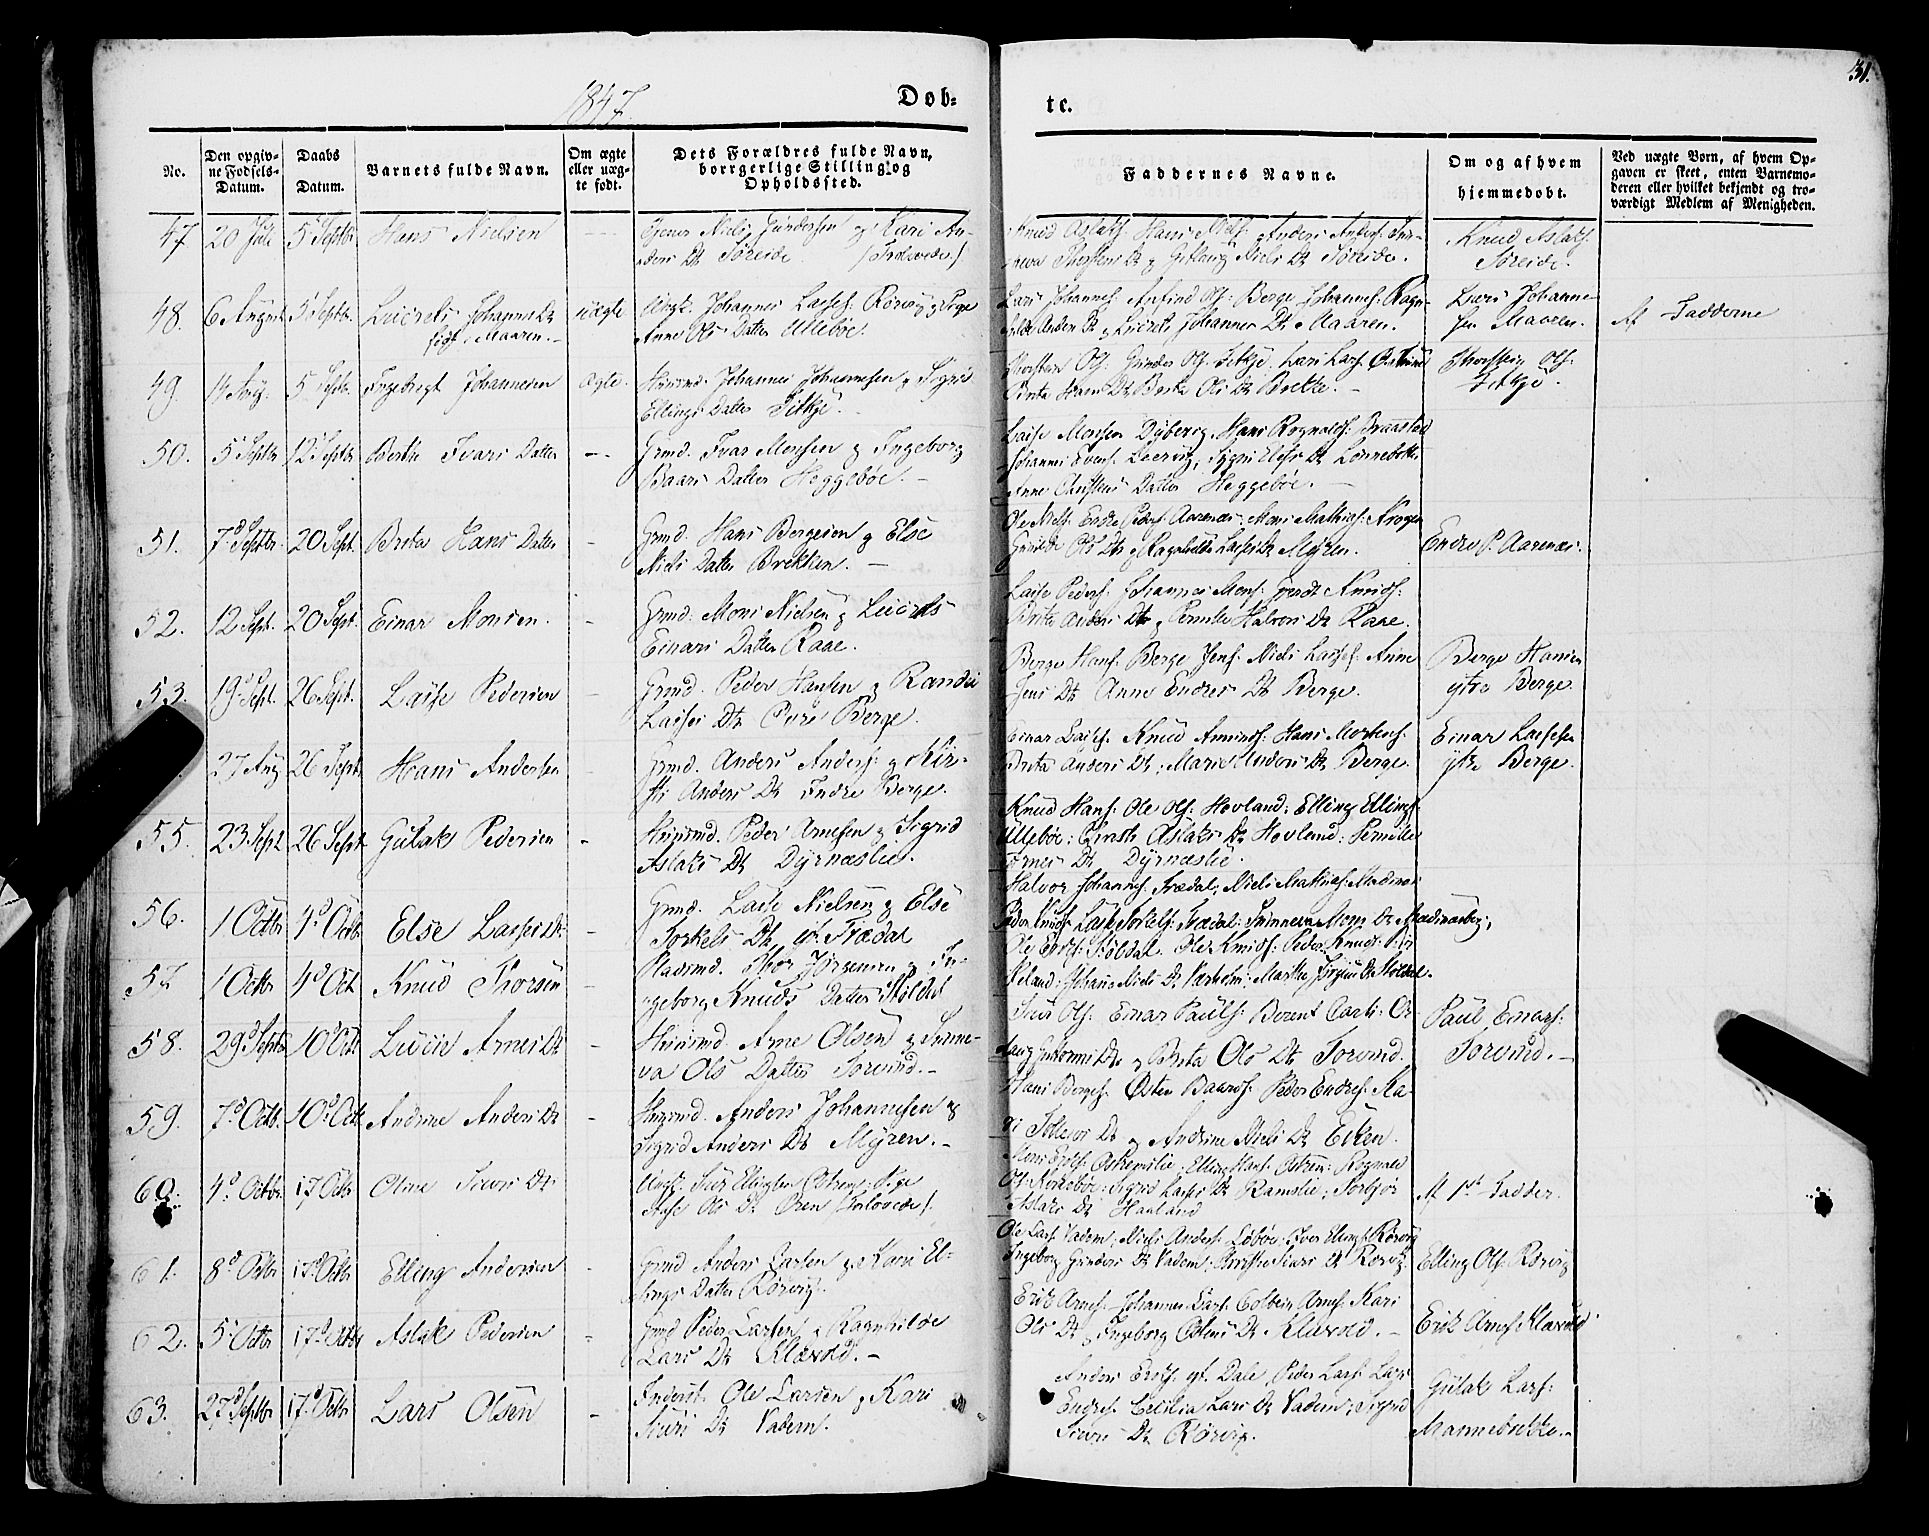 31.
1847.
Dob=
te.
No.
Den opgiv=
ne Fødsels=
Datum.
Daabs
Datum.
Barnets fulde Navn.
Om ægte
eller uæg=
te født.
Dets Forældres fulde Navn,
borrgerlige Stilling og
Opholdssted.
Faddernes Navne.
Om og af hvem
hjemmedøbt.
Ved uægte Børn, af hvem Op=
gaven er skeet, enten Barnemo=
deren eller hvilket bekjendt og tro=
værdigt Medlem af Menigheden.
47 20 Juli 5 Septbr Hans Nielsen
Niels Gundersen og Kari An-
ders Dt Søreide
Knud Aslaks. Hans Nils. Anders Anders.
Niels Dt Søreide.
Knud Aslaks.
Søreide.
48. 6 August 5 Septbr. Lucrets Johannes Dt
Maaren.
uægte
Ungk. Johannes Lasses. Rørvig og Pige
Anne Ols Datter Ullebøe.
Lars Johannes. Anfind Ols. Berge Johannes. Ragn-
Anders Dt og Lucrets Johannes Dt Maaren.
Lars Johanne-
sen Maaren.
Af Fadderne
49. 14 Aug. 5 Septbr. Ingebrigt Johannesen ægte.
Huusmd. Johannes Johannesen og Sigrid
Ellings Datter Sitkje.
Thorsten Ols. Gunder Ols. Sitkje, Lars Lars.
Brita Hans Dt Brita Ols Dt Brekke.
Thorsten Ols.
Sitkje.
50. 5 Septbr 12 Septbr Brithe Ivars Datter
Grmd. Ivar Monsen og Ingeborg
Baars Datter Heggebøe.
Lasse Monsen Dyberg, Hans Rognalds. Braastad
Johannes Evens. Leervig, Dt Lønnebotn
Anne Datter Heggebøe.
51. 7d Septbr. 20 Sept. Brita Hans Datter
Grmd. Hans Bergesen og Else
Niels Datter Brekken.
Ole Niels. Endre Peders. Aarenæs. Mons Mathias. Krogen
Ols Dt og Ragnhilde Lasses Dt Myren.
Endre P. Aarenæs.
52. 12 Sept. 20 Sept. Einar Monsen.
Grmd. Mons Nielsen og Lucrets
Einars Datter Raae.
Lasse Peders. Johannes Mons. Knuds.
Brita Anders Dt og Pernille Halvors Dt Raae.
53. 19d Sept. 26 Sept. Lasse Pedersen
Grmd. Peder Hansen og Randi
Lasses Dt Berge.
Berge Hans. Berge Jens. Niels Lasses. Anne
Jens Dt Anne Endres Dt Berge.
Berge Hansen
ytre Berge.
27 Aug 26 Sept Hans Andersen
Grmd. Anders Anders. og Kir-
sti Anders Dt Indre Berge.
Einar Lasses. Knud Amunds. Hans Mortens.
Brita Anders Dt, Marie Anders Dt Berge.
Einar Lassesen
ytre Berge.
55. 23 Sept 26 Sept Gulak Pedersen
Huusmd. Peder Arnesen og Sigrid
Aslaks Dt Dyrnæslie.
Knud Hans. Ole Ols. Hovland; Elling Ellings.
Ullebøe; Aslaks Dt Hovland; Pernille
Arnes Dt Dyrnæslie.
56. 1 Octbr 4d Octbr Else Lasses Dt
Grmd. Lasse Nielsen og Else
Torkels Dt Frædal
Halvor Johannes. Frædal; Niels Mathias.
Peder Knuds. Lasse Torkels. Frædal;
57 1 Octbr 4d Oct Knud Thorsen
Pladsmd. Thor Jørgensen og In-
geborg Knuds Datter Støldal
Ole Støldal. Ole Knuds. Peder Knuds.
Johanne Niels Dt Marthe Jørgens Dt Støldal.
58. 29d Septbr 10d Oct Arnes Dt
Huusmd. Arne Olsen og Sunne-
va Ols Datter Torvund.
Siur Ols. Einar Pauls. Berent
Guttorms Dt og Brita Ols Dt Torvund.
Paul Einars.
Torvund.
59. 7d Octb. 10d Octb Andrine Anders Dt
Huusmd. Anders Johannesen og
Sigrid Anders Dt Myren.
Hans Berges. Østen Baards. Peder Endres. Ka-
ri Tollefs Dt og Andrine Niels Dt Eiken.
60. 4d Octbr. 17 Octbr Oline Siurs Dt
Ungk. Siur Ellingsen Østren. Pige
Aase Ols Dt Øren (Trolovede).
Mons Elling Hans. Østren: Rognald
Sigrid Lasses Dt Ramslie; Torbjør
Aslaks Dt Haaland
Af 1ste Fadder.
61. 8d Octbr 17d Octbr Elling Andersen
Grmd Anders Larsen og Kari El=
lings Datter Rørvig.
Ole Lars. Vadem; Niels Anders. Ivar Ellings. Rørvig
Ingeborg Gunders Dt Vadem; Siurs Dt Rørvig.
Elling Ols. Rørvig
62. 5 Octbr 17d Octbr Aslak Pedersen
Grmd Peder Larsen og Ragnhilde
Lars Dt Klævold.
Erik Arnes. Johannes Lars. Colbein Arnes. Kari
Ols Dt Ingeborg Ostens Dt Klævold.
Erik Arnes. Klævold
63. 27d Septbr 17d Octbr Lars Olsen
Inderst. Ole Larsen og Kari
Siurs Dt Vadem.
Anders Dale, Peder Lars. Lars
Endres. Cecilia Lars Dt Vadem; Sigrid
Siurs Dt Rørvig.
Gulak Lars.